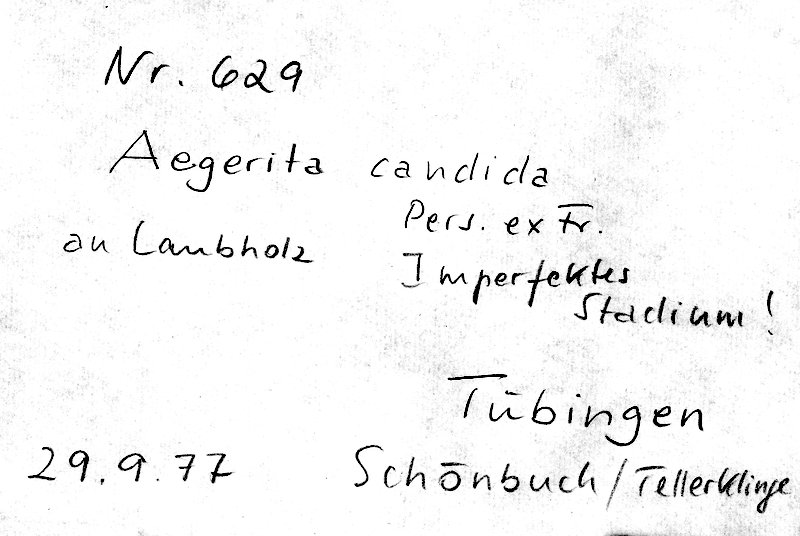 Nr. 629
Aegerita candida
Pers. ex Fr.
an Laubholz
Imperfektes
Stadium!
Tübingen
29.9.77 Schönbuch/Tellerklinge